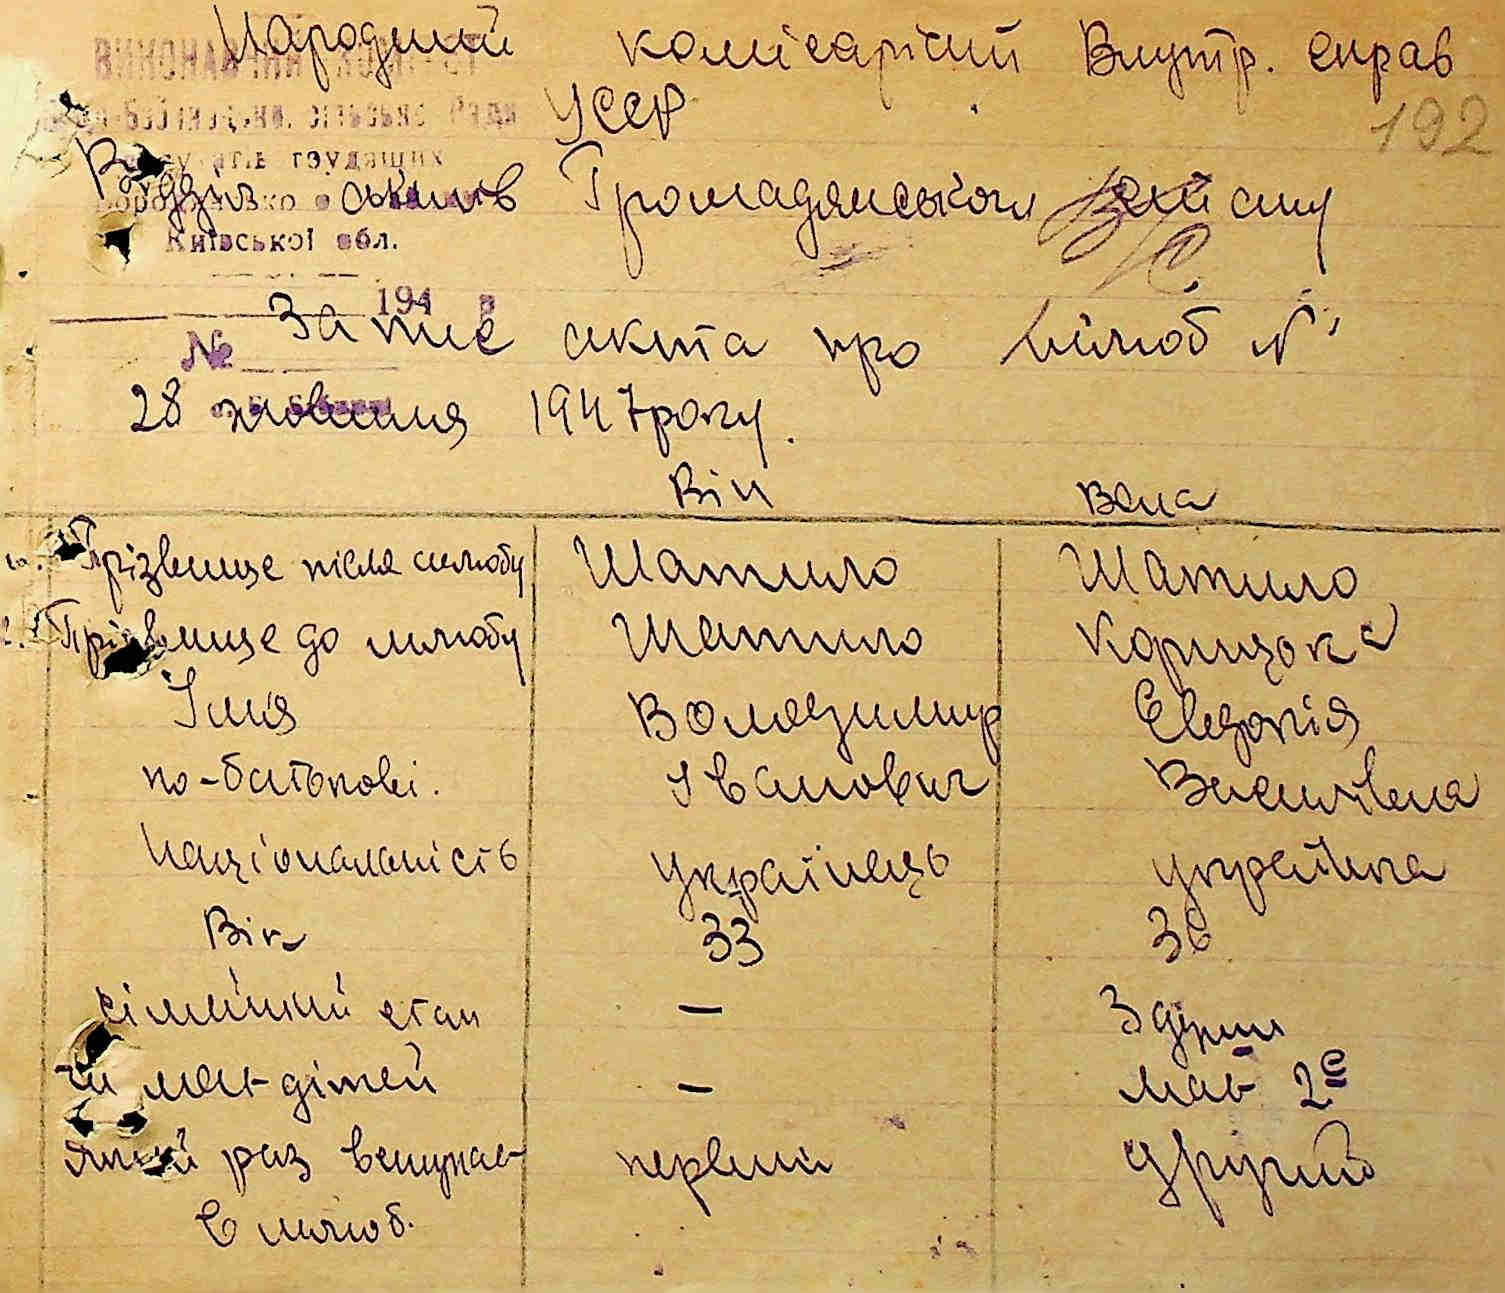 Народний комісаріят Внутр. справ
УССР
192
ВИКОНАВЧИЙ КОМІТЕТ
сільсько Ради
депутатів трудящих
Бородянсько
Київської обл.
Відділ актів Громадянського
194 р
№
Запис акта про шлюб №
28 жовтня 1947 року.
Він Вона
1. Прізвище після шлюбу Шатило Шатило
2. Прізвище до шлюбу Шатило Корицька
Імя Володимир Евдокія
по-батькові. Іванович Василівна
Національність українець українка
Вік 33 36
сімейний стан —
чи має дітей — має 2є
який раз вступає первий другий
в шлюб.